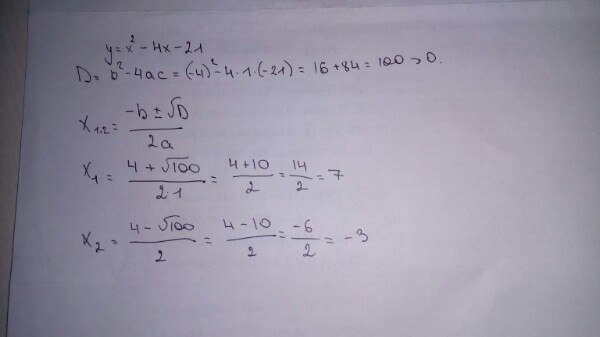 y = x² - 4x - 21
D = b² - 4ac = (-4)² - 4·1·(-21) = 16 + 84 = 100 > 0.
x₁.₂ = (-b ± √D) / 2a
x₁ = (4 + √100) / (2·1) = (4 + 10) / 2 = 14 / 2 = 7
x₂ = (4 - √100) / 2 = (4 - 10) / 2 = -6 / 2 = -3